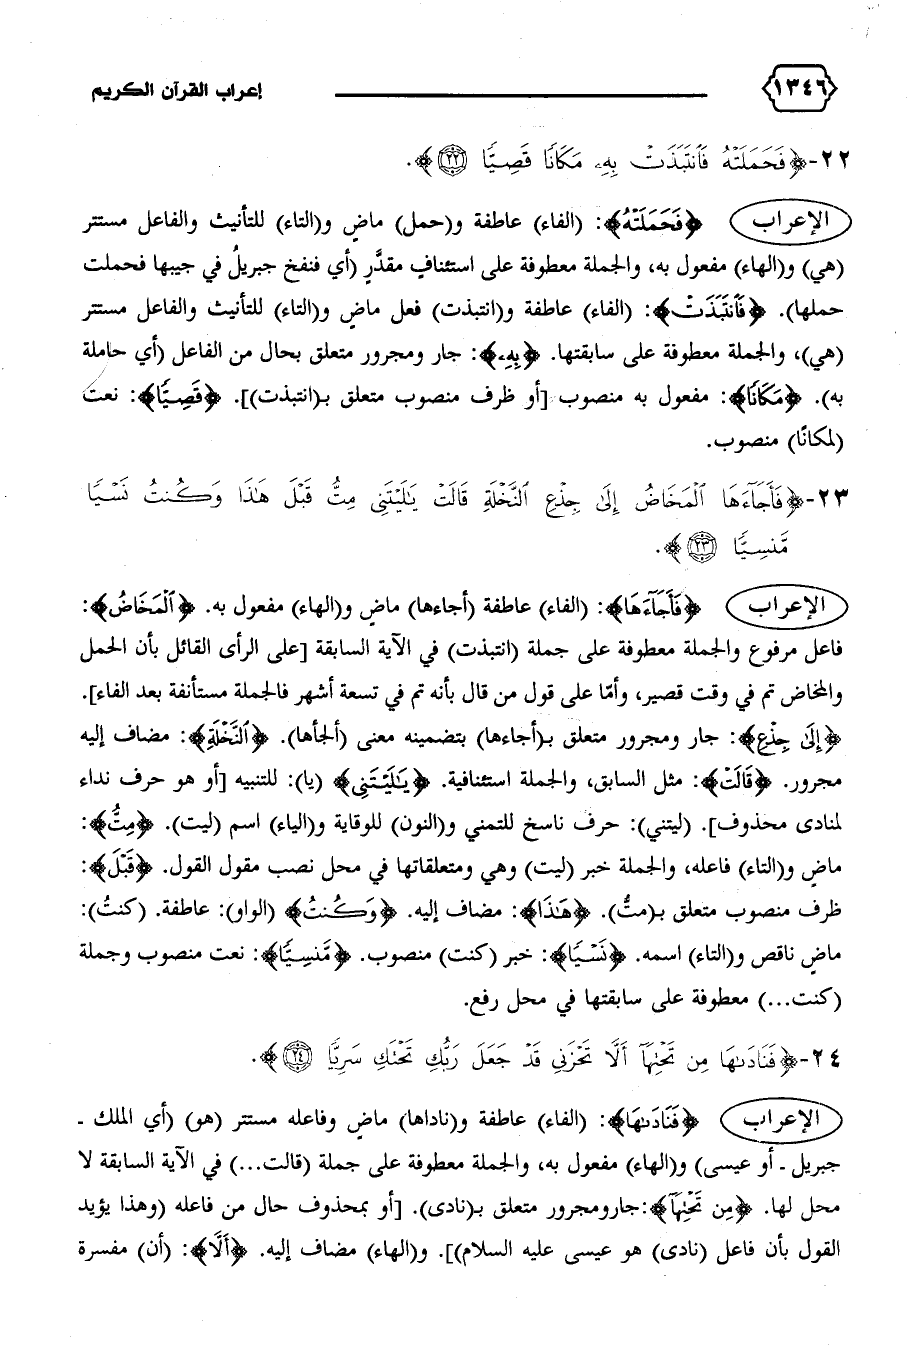 ١٣٤٦ إعراب القرآن الكريم
٢٢-﴿فَحَمَلَتْهُ فَٱنتَبَذَتْ بِهِۦ مَكَانًا قَصِيًّا ٢٢﴾.
الإعراب ﴿فَحَمَلَتْهُ﴾: (الفاء) عاطفة و(حمل) ماضٍ و(التاء) للتأنيث والفاعل مستتر
(هي) و(الهاء) مفعول به، والجملة معطوفة على استئنافٍ مقدَّرٍ (أي فنفخ جبريلُ في جيبها فحملت
حملها). ﴿فَٱنتَبَذَتْ﴾: (الفاء) عاطفة و(انتبذت) فعل ماضٍ و(التاء) للتأنيث والفاعل مستتر
(هي)، والجملة معطوفة على سابقتها. ﴿بِهِۦ﴾: جار ومجرور متعلق بحال من الفاعل (أي حاملة
به). ﴿مَكَانًا﴾: مفعول به منصوب [أو ظرف منصوب متعلق بـ(انتبذت)]. ﴿قَصِيًّا﴾: نعت
(لمكانًا) منصوب.
٢٣-﴿فَأَجَآءَهَا ٱلْمَخَاضُ إِلَىٰ جِذْعِ ٱلنَّخْلَةِ قَالَتْ يَٰلَيْتَنِى مِتُّ قَبْلَ هَٰذَا وَكُنتُ نَسْيًا
مَّنسِيًّا ٢٣﴾.
الإعراب ﴿فَأَجَآءَهَا﴾: (الفاء) عاطفة (أجاءها) ماضٍ و(الهاء) مفعول به. ﴿ٱلْمَخَاضُ﴾:
فاعل مرفوع والجملة معطوفة على جملة (انتبذت) في الآية السابقة [على الرأى القائل بأن الحمل
والمخاض تم في وقت قصير، وأمّا على قول من قال بأنه تم في تسعة أشهر فالجملة مستأنفة بعد الفاء].
﴿إِلَىٰ جِذْعِ﴾: جار ومجرور متعلق بـ(أجاءها) بتضمينه معنى (ألجأها). ﴿ٱلنَّخْلَةِ﴾: مضاف إليه
مجرور. ﴿قَالَتْ﴾: مثل السابق، والجملة استئنافية. ﴿يَٰلَيْتَنِى﴾ (يا): للتنبيه [أو هو حرف نداء
لمنادى محذوف]. (ليتني): حرف ناسخ للتمني و(النون) للوقاية و(الياء) اسم (ليت). ﴿مِتُّ﴾:
ماضٍ و(التاء) فاعله، والجملة خبر (ليت) وهي ومتعلقاتها في محل نصب مقول القول. ﴿قَبْلَ﴾:
ظرف منصوب متعلق بـ(متُّ). ﴿هَٰذَا﴾: مضاف إليه. ﴿وَكُنتُ﴾ (الواو): عاطفة. (كنتُ):
ماضٍ ناقص و(التاء) اسمه. ﴿نَسْيًا﴾: خبر (كنت) منصوب. ﴿مَّنسِيًّا﴾: نعت منصوب وجملة
(كنت...) معطوفة على سابقتها في محل رفع.
٢٤-﴿فَنَادَىٰهَا مِن تَحْتِهَآ أَلَّا تَحْزَنِى قَدْ جَعَلَ رَبُّكِ تَحْتَكِ سَرِيًّا ٢٤﴾.
الإعراب ﴿فَنَادَىٰهَا﴾: (الفاء) عاطفة و(ناداها) ماضٍ وفاعله مستتر (هو) (أي الملك ـ
جبريل ـ أو عيسى) و(الهاء) مفعول به، والجملة معطوفة على جملة (قالت...) في الآية السابقة لا
محل لها. ﴿مِن تَحْتِهَآ﴾:جارومجرور متعلق بـ(نادى). [أو بمحذوف حال من فاعله (وهذا يؤيد
القول بأن فاعل (نادى) هو عيسى عليه السلام)]. و(الهاء) مضاف إليه. ﴿أَلَّا﴾: (أن) مفسرة